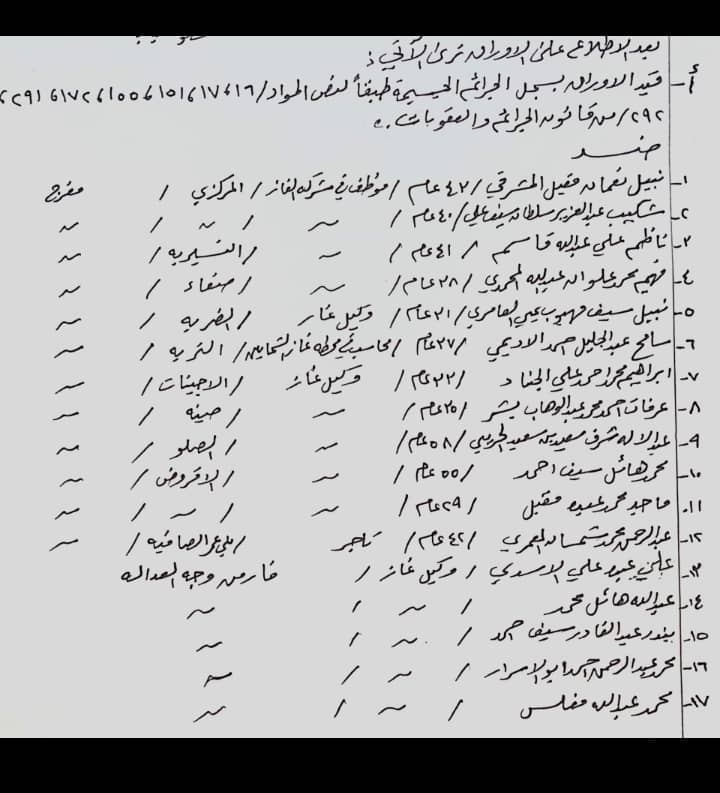 بعد الاطلاع على الاوراق نرى الآتي :
أ- قيد الاوراق بسجل الجرائم الجسيمة طبقاً لنص المواد/١٦، ١٧، ١٥١، ١٥٥، ١٧٢، ٢٩١،
٢٩٢/ من قانون الجرائم والعقوبات .
ضد
١- نبيل نعمان مقبل المشرقي / ٤٣ عام / موظف في شركة الغاز / المركزي / مفرج
٢- شكيب عبدالعزيز سلطان سيف علي / ٤٠ عام / ~ / ~ / ~
٣- ناظم علي عبدالله قاسم / ٤١ عام / ~ / النشيرية / ~
٤- فهيم محمد علوان عبدالله المحمدي / ٣٨ عام / ~ / صنعاء / ~
٥- نبيل سيف مهيوب العامري / ٣١ عام / وكيل غاز / الضربه / ~
٦- سامح عبدالجليل احمد الاديمي / ٣٧ عام / محاسب في محطة غاز / التربه / ~
٧- ابراهيم محمد احمد علي الجناد / ٣٣ عام / وكيل غاز / الاجينات / ~
٨- عرفات احمد محمد عبدالوهاب بشر / ٣٥ عام / ~ / صينه / ~
٩- عبدالاله شرف سعيد بن سعيد / ٥٨ عام / ~ / الصلو / ~
١٠- محمد هائل سيف احمد / ٥٥ عام / ~ / الاقروض / ~
١١- ماجد محمد عبده مقبل / ٢٩ عام / ~ / ~ / ~
١٢- عبدالرحمن محمد شمسان المعمري / ٤٢ عام / تاجر / الصافيه / ~
١٣- علي عبده علي الاسدي / وكيل غاز / فار من وجه العداله
١٤- عبدالله هائل محمد / ~ / ~
١٥- بندر عبدالقادر سيف احمد / ~ / ~
١٦- محمد عبدالرحمن احمد ابو الاسرار / ~ / ~
١٧- محمد عبدالله مغلس / ~ / ~